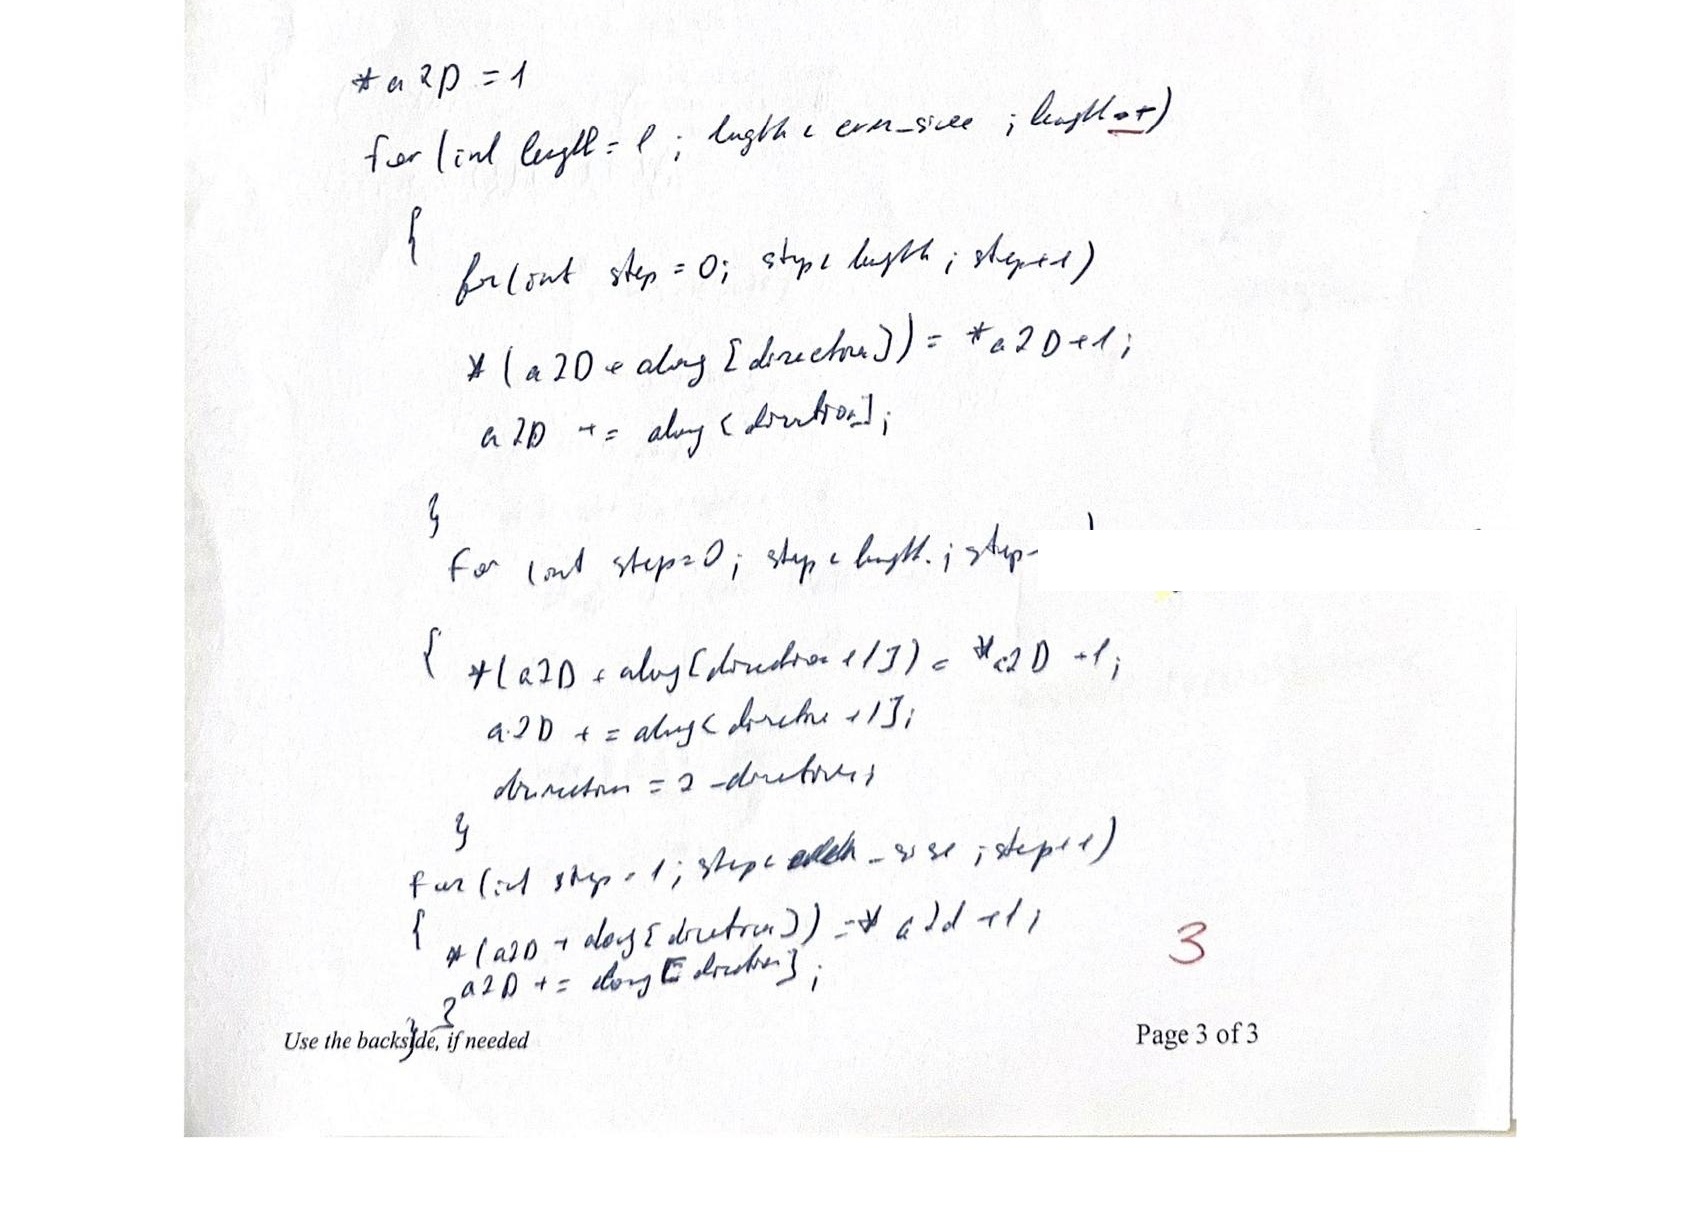 *a2D = 1
for (int length = 1; length < ; length++)
{
for(int step = 0; step < length; step++)
*(a2D + along[direction]) = *a2D+1;
a2D += along[direction];
}
for (int step=0; step < length; step
{ *(a2D + along[direction+1]) = *a2D +1;
a2D += along[direction +1];
direction = 2 -direction;
}
for (int step = 1; step < ; step++)
{ *(a2D + along[direction]) = * a2d +1;
a2D += along[direction];
}
}
3
Use the backside, if needed
Page 3 of 3